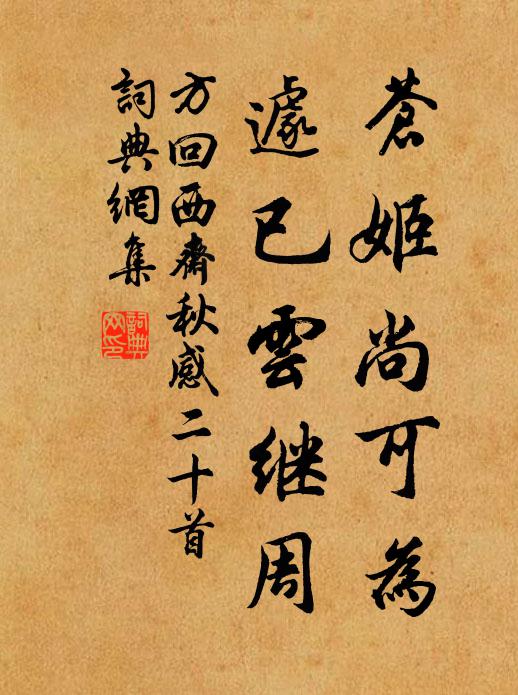 蒼姬尚可為
遽已雲継周
方回西齋秋感二十首
詞典網集
詞典網印